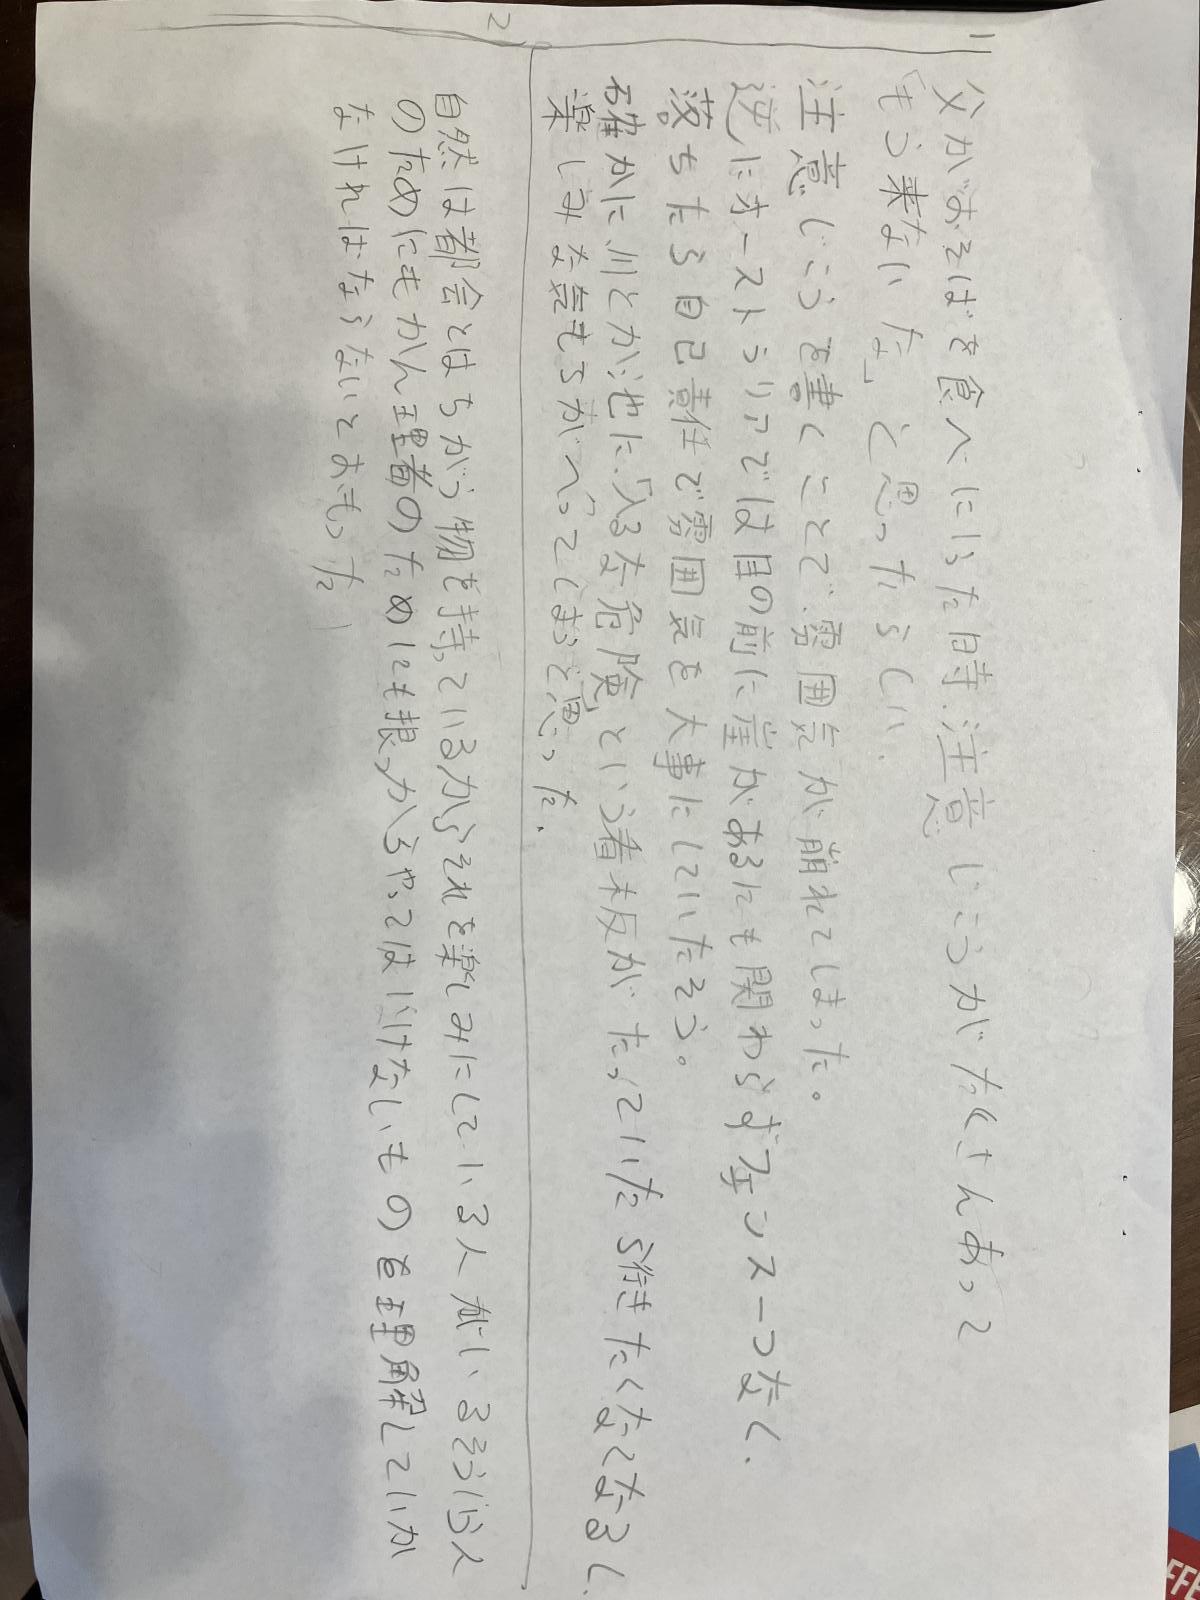 1
父がおそばを食べにいった時、注意じこうがたくさんあって
「もう来ないな」と思ったらしい.
注意じこうを書くことで、雰囲気が崩れてしまった。
逆にオーストラリアでは目の前に崖があるにも関わらずフェンス一つなく.
落ちたら自己責任で雰囲気を大事にしていたそう。
確かに川とか池に「入るな危険」という看板がたっていたら行きたくなくなるし.
楽しみな気もちがへってしまうと思った.
2
自然は都会とはちがう物を持っているからそれを楽しみにしている人がいるそういう人
のためにもかん理者のためにも根っからやってはいけないものを理解していか
なければならないとおもった